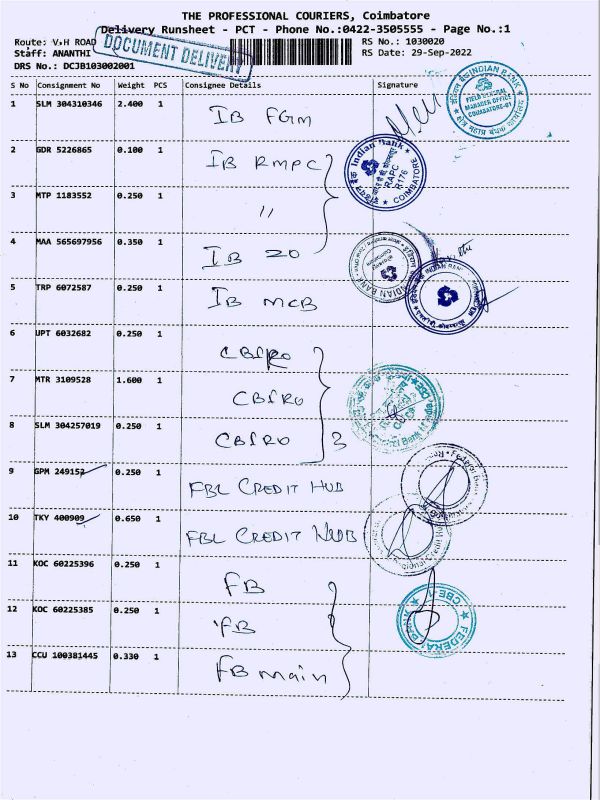 THE PROFESSIONAL COURIERS, Coimbatore
Delivery Runsheet - PCT - Phone No.:0422-3505555 - Page No.:1
Route: V.H ROAD
RS No.: 1030020
Staff: ANANTHI
RS Date: 29-Sep-2022
DRS No.: DCJB103002001
DOCUMENT DELIVERY
S No Consignment No Weight PCS Consignee Details Signature
1 SLM 304310346 2.400 1 IB FGM
INDIAN BANK
FIELD GENERAL
MANAGER OFFICE
COIMBATORE-01
2 GDR 5226865 0.100 1 IB RMPC
Indian Bank
RAPC
R176
COIMBATORE
3 MTP 1183552 0.250 1 "
4 MAA 565697956 0.350 1 IB ZO
INDIAN BANK
5 TRP 6072587 0.250 1 IB MCB
INDIAN BANK
6 UPT 6032682 0.250 1 CBIRO
7 MTR 3109528 1.600 1 CBIRO
8 SLM 304257019 0.250 1 CBIRO 3
9 GPM 249152 0.250 1 FBL CREDIT HUB
10 TKY 400909 0.650 1 FBL CREDIT HUB
11 KOC 60225396 0.250 1 FB
12 KOC 60225385 0.250 1 FB
CBE-1
13 CCU 100381445 0.330 1 FB main